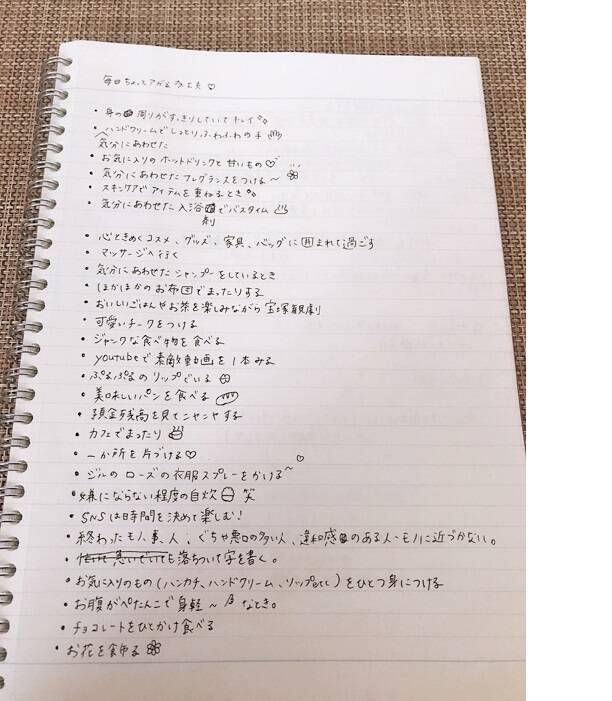 毎日ちょっとアガる工夫♡
・身の周りがすっきりしていてキレイ
・ハンドクリームでしっとり、ふわふわの手
気分にあわせた
・お気に入りのホットドリンクと甘いもの♡
・気分にあわせたフレグランスをつける〜
・スキンケアでアイテムを重ねるとき
・気分にあわせた入浴剤でバスタイム
・心ときめくコスメ、グッズ、家具、バッグに囲まれて過ごす
・マッサージへ行く
・気分にあわせたシャンプーをしているとき
・ほかほかのお布団でまったりする
・おいしいごはんやお茶を楽しみながら宝塚観劇
・可愛いチークをつける
・ジャンクな食べ物を食べる
・youtubeで素敵動画を1本みる
・ぷるぷるのリップでいる
・美味しいパンを食べる
・預金残高を見てニヤニヤする
・カフェでまったり
・一か所を片づける♡
・ジルのローズの衣服スプレーをかける〜♡
・嫌にならない程度の自炊 笑
・SNSは時間を決めて楽しむ!
・終わったモノ、事、人、ぐちや悪口の多い人、違和感のある人・モノに近づかない。
・急いでいても落ちついて字を書く。
・お気に入りのもの(ハンカチ、ハンドクリーム、リップetc)をひとつ身につける
・お腹がぺたんこで身軽〜なとき。
・チョコレートをひとかけ食べる
・お花を飾る